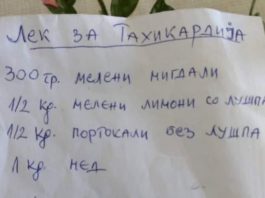 Лек за Тахикардија
300 гр. мелени мигдали
1/2 кг. мелени лимони со лушпа
1/2 кг. портокали без лушпа
1 кг. мед